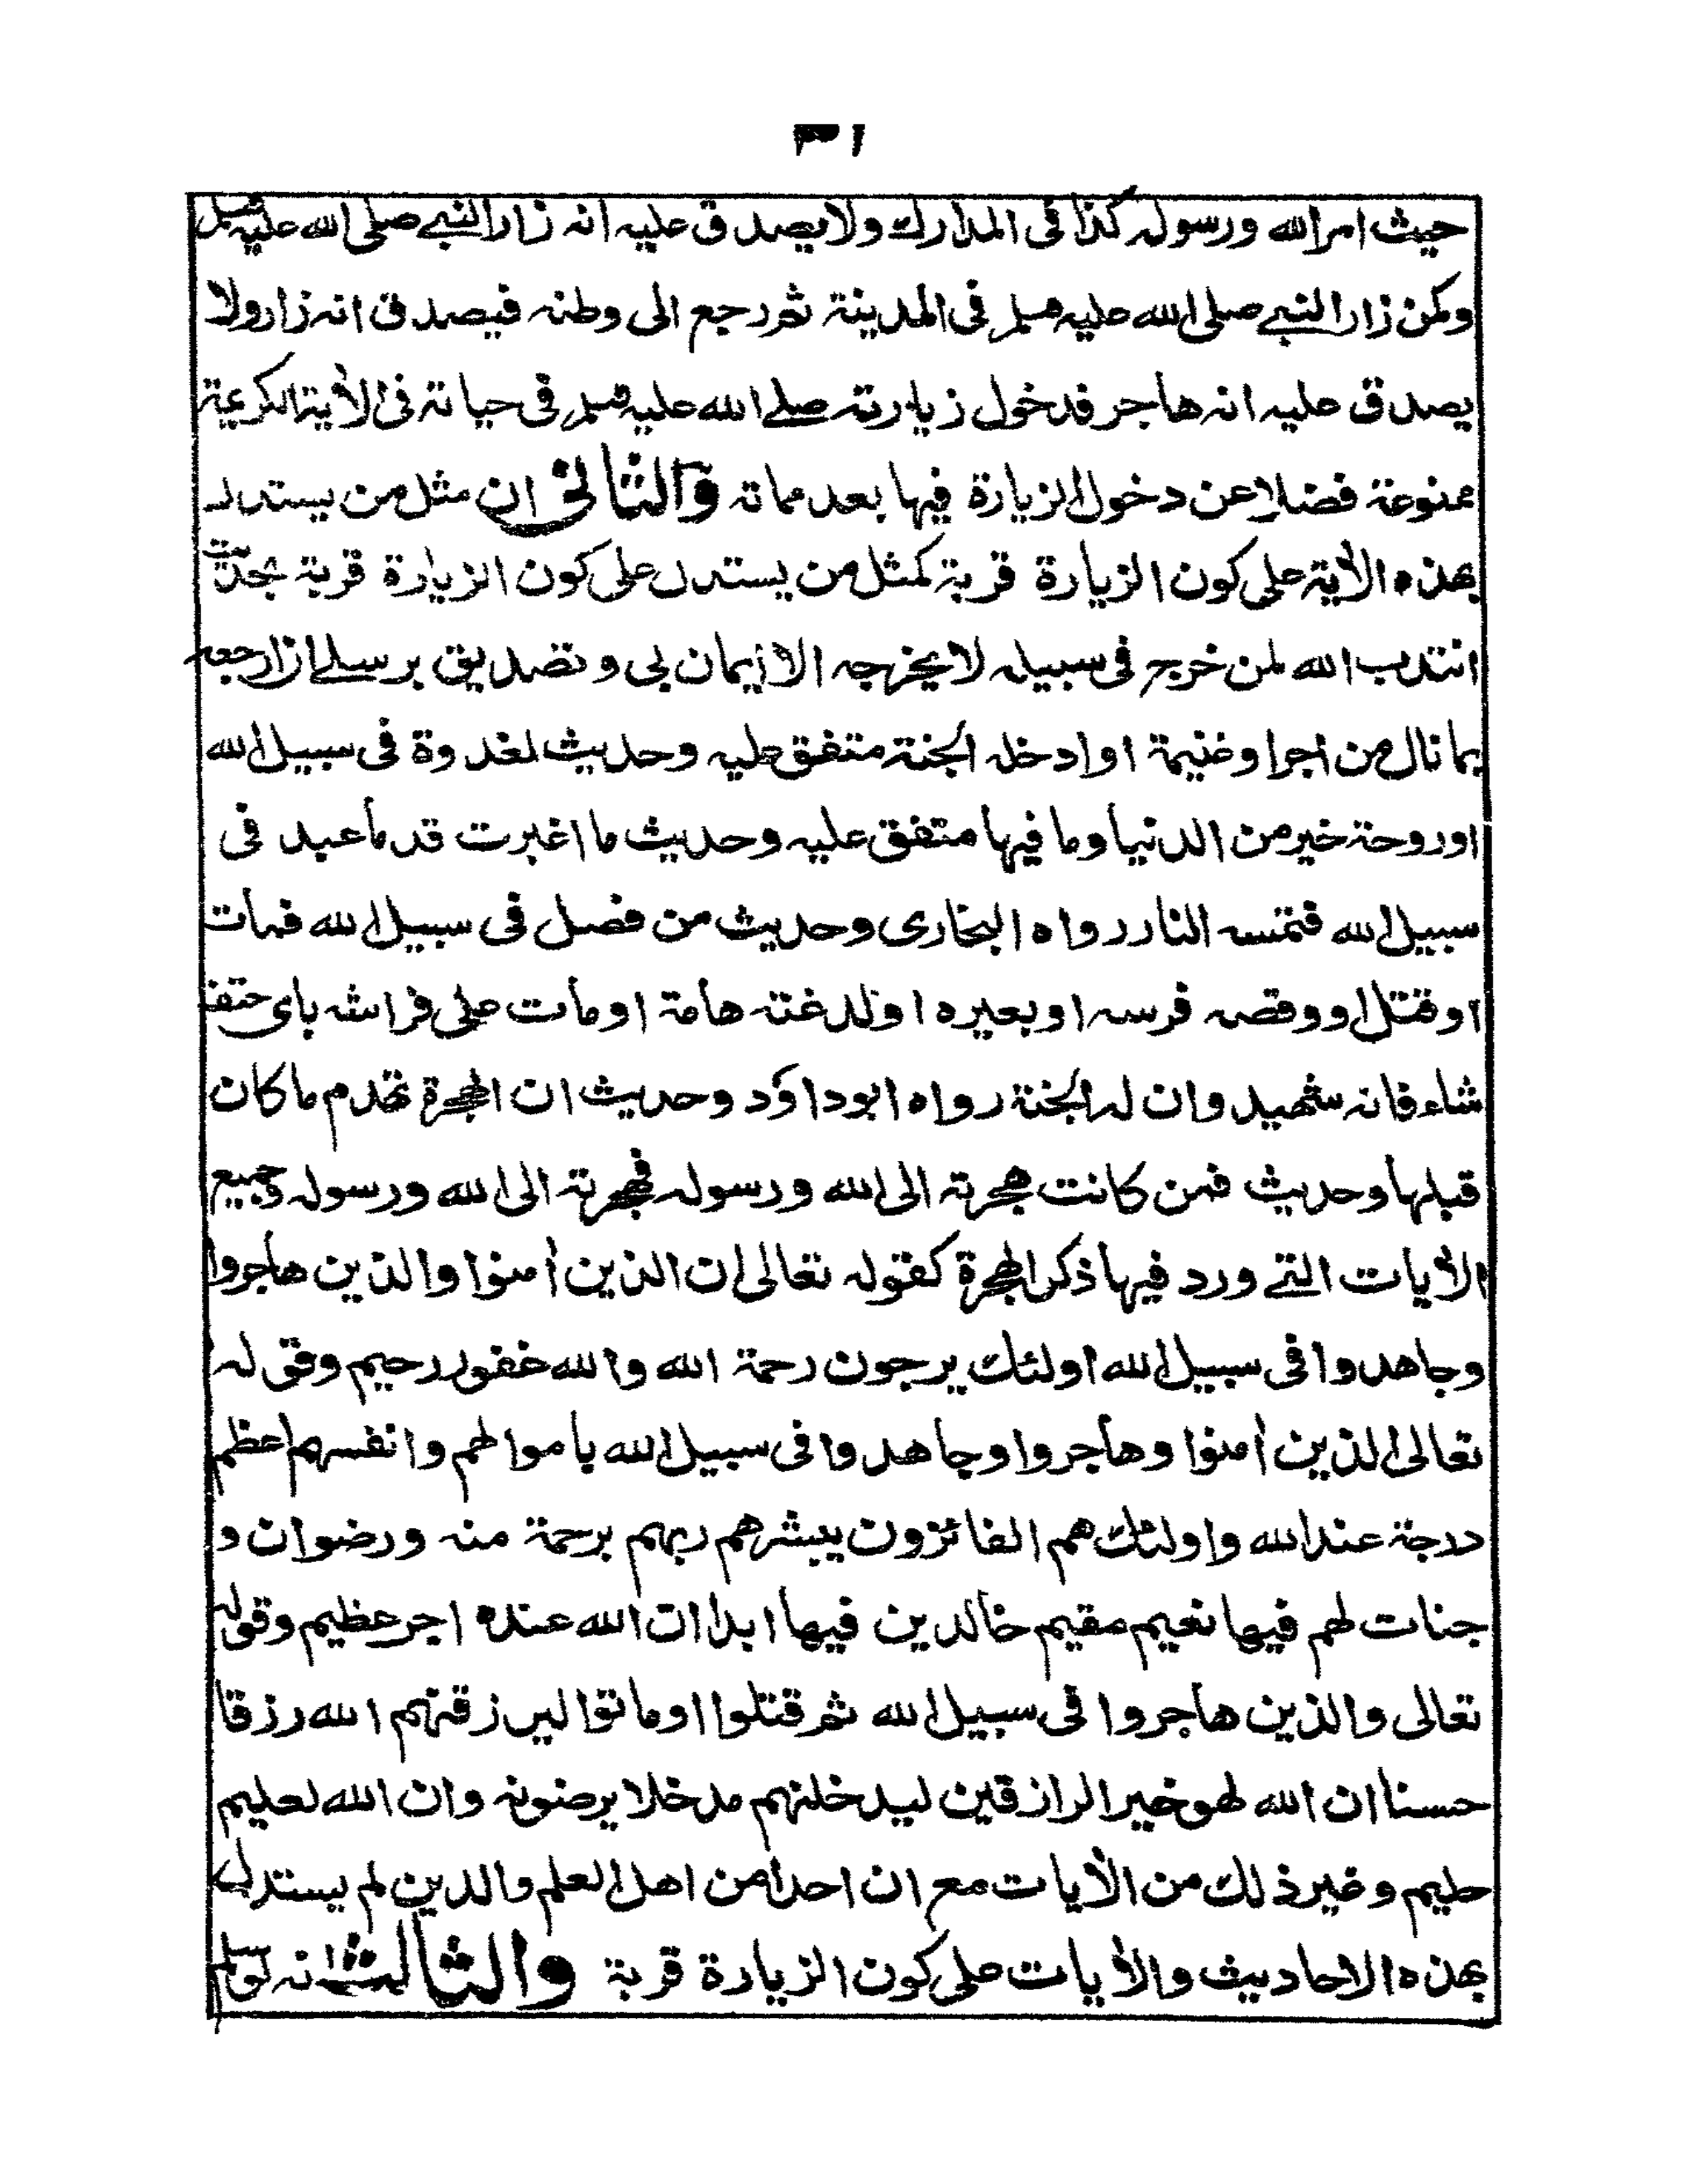 ٣١
حيث امر الله ورسوله كذا فى المدارك ولا يصدق عليه انه زار النبى صلى الله عليه وسلم
وكمن زار النبى صلى الله عليه وسلم فى المدينة ثم رجع الى وطنه فيصدق انه زار ولا
يصدق عليه انه هاجر فدخول زيارته صلى الله عليه وسلم فى حياته فى الأية الكريمة
ممنوعة فضلا عن دخول الزيارة فيها بعد مماته والثانى ان مثل من يستدل
بهذه الأية على كون الزيارة قربة كمثل من يستدل على كون الزيارة قربة بحديث
انتدب الله لمن خرج فى سبيله لا يخرجه الا ايمان بى وتصديق برسلى ان ارجعه
بما نال من اجر او غنيمة او ادخله الجنة متفق عليه وحديث لغدوة فى سبيل الله
او روحة خير من الدنيا وما فيها متفق عليه وحديث ما اغبرت قدما عبد فى
سبيل الله فتمسه النار رواه البخارى وحديث من فصل فى سبيل الله فمات
او قتل او وقصه فرسه او بعيره او لدغته هامة او مات على فراشه باى حتف
شاء فانه شهيد وان له الجنة رواه ابو داؤد وحديث ان الهجرة تهدم ما كان
قبلها وحديث فمن كانت هجرته الى الله ورسوله فهجرته الى الله ورسوله وجميع
الأيات التى ورد فيها ذكر الهجرة كقوله تعالى ان الذين أمنوا والذين هاجروا
وجاهدوا فى سبيل الله اولئك يرجون رحمة الله والله غفور رحيم وقوله
تعالى الذين أمنوا وهاجروا وجاهدوا فى سبيل الله باموالهم وانفسهم اعظم
درجة عند الله واولئك هم الفائزون يبشرهم ربهم برحمة منه ورضوان و
جنات لهم فيها نعيم مقيم خالدين فيها ابدا ان الله عنده اجر عظيم وقوله
تعالى والذين هاجروا فى سبيل الله ثم قتلوا او ماتوا ليرزقنهم الله رزقا
حسنا ان الله لهو خير الرازقين ليدخلنهم مدخلا يرضونه وان الله لعليم
حليم وغير ذلك من الأيات مع ان احدا من اهل العلم والدين لم يستدل
بهذه الاحاديث والأيات على كون الزيارة قربة والثالث انه لو سلم